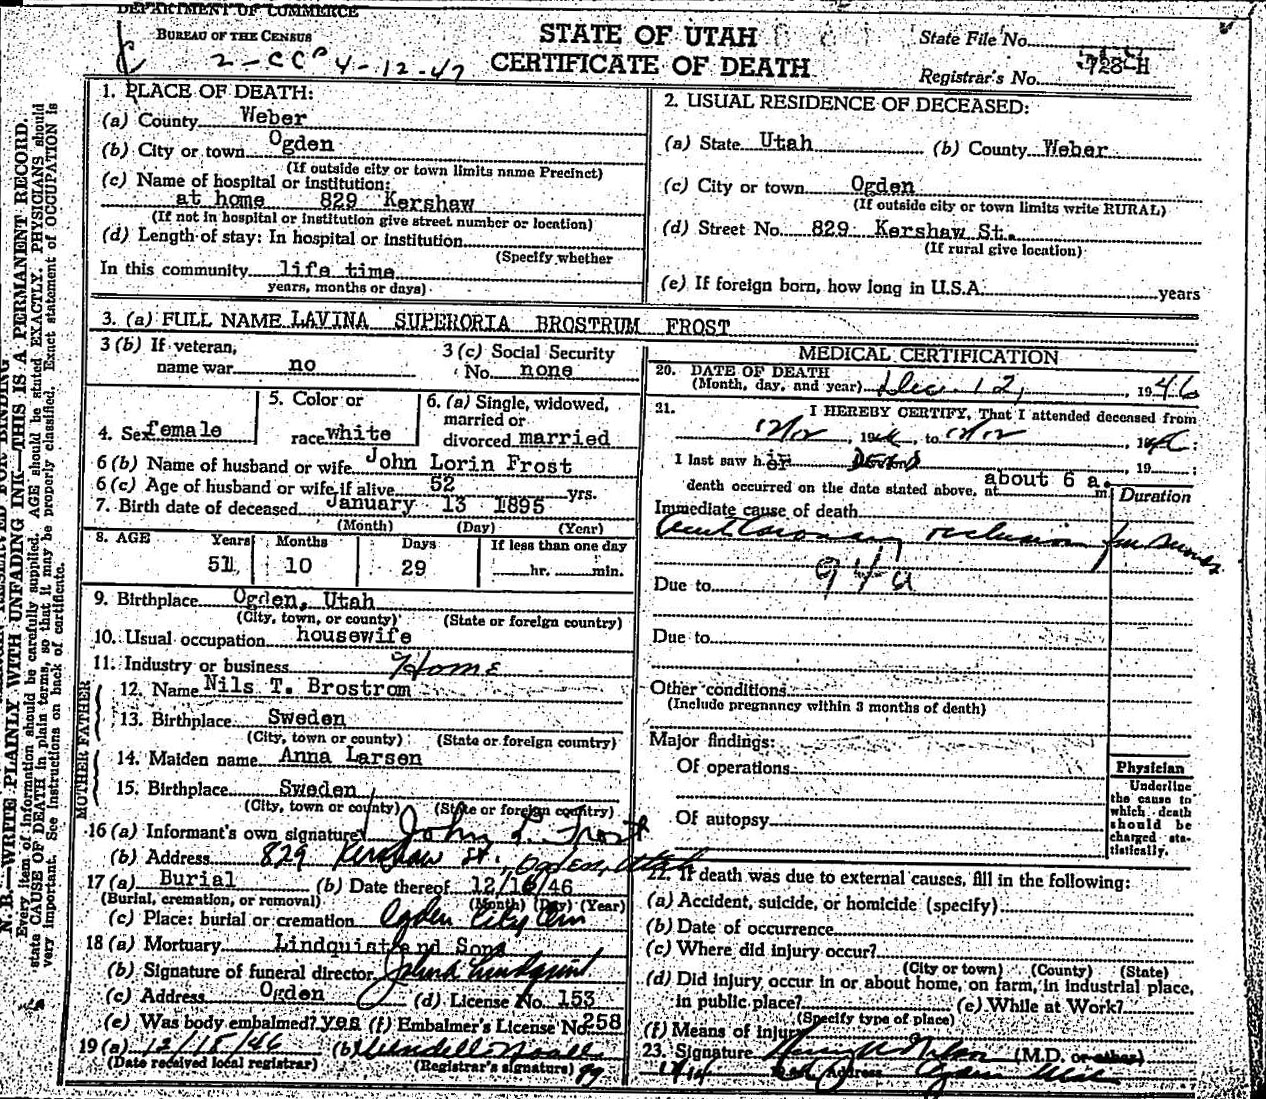 DEPARTMENT OF COMMERCE
BUREAU OF THE CENSUS
2-CCP 4-12-47
STATE OF UTAH
CERTIFICATE OF DEATH
State File No.
Registrar's No. 728-H
N. B.—WRITE PLAINLY WITH UNFADING INK—THIS IS A PERMANENT RECORD.
Every item of information should be carefully supplied. AGE should be stated EXACTLY. PHYSICIANS should
state CAUSE OF DEATH in plain terms, so that it may be properly classified. Exact statement of OCCUPATION is
very important. See instructions on back of certificate.
1. PLACE OF DEATH:
(a) County Weber
(b) City or town Ogden
(If outside city or town limits name Precinct)
(c) Name of hospital or institution:
at home 829 Kershaw
(If not in hospital or institution give street number or location)
(d) Length of stay: In hospital or institution
(Specify whether
In this community life time
years, months or days)
2. USUAL RESIDENCE OF DECEASED:
(a) State Utah (b) County Weber
(c) City or town Ogden
(If outside city or town limits write RURAL)
(d) Street No. 829 Kershaw St.
(If rural give location)
(e) If foreign born, how long in U.S.A. years
3. (a) FULL NAME LAVINA SUPERORIA BROSTRUM FROST
3 (b) If veteran,
name war no
3 (c) Social Security
No. none
4. Sex female
5. Color or
race white
6. (a) Single, widowed,
married or
divorced married
6 (b) Name of husband or wife John Lorin Frost
6 (c) Age of husband or wife if alive 52 yrs.
7. Birth date of deceased January 13 1895
(Month) (Day) (Year)
8. AGE Years Months Days If less than one day
51 10 29 hr. min.
9. Birthplace Ogden, Utah
(City, town, or county) (State or foreign country)
10. Usual occupation housewife
11. Industry or business Home
FATHER
12. Name Nils T. Brostrom
13. Birthplace Sweden
(City, town or county) (State or foreign country)
MOTHER
14. Maiden name Anna Larsen
15. Birthplace Sweden
(City, town or county) (State or foreign country)
16 (a) Informant's own signature John L. Frost
(b) Address 829 Kershaw St., Ogden, Utah
17 (a) Burial (b) Date thereof 12/16/46
(Burial, cremation, or removal) (Month) (Day) (Year)
(c) Place: burial or cremation Ogden City Cem
18 (a) Mortuary Lindquist and Sons
(b) Signature of funeral director John A Lindquist
(c) Address Ogden (d) License No. 153
(e) Was body embalmed? yes (f) Embalmer's License No. 258
19 (a) 12/18/46 (b) Wendell Noall
(Date received local registrar) (Registrar's signature)
MEDICAL CERTIFICATION
20. DATE OF DEATH
(Month, day, and year) Dec. 12, 1946
21. I HEREBY CERTIFY, That I attended deceased from
12/12, 1946, to 12/12, 1946
I last saw her , 19 ;
death occurred on the date stated above, at about 6 a. m.
Duration
Immediate cause of death
Acute Coronary occlusion few seconds
94a
Due to
Due to
Other conditions
(Include pregnancy within 3 months of death)
Major findings:
Of operations
Of autopsy
Physician
Underline
the cause to
which death
should be
charged sta-
tistically.
22. If death was due to external causes, fill in the following:
(a) Accident, suicide, or homicide (specify)
(b) Date of occurrence
(c) Where did injury occur?
(City or town) (County) (State)
(d) Did injury occur in or about home, on farm, in industrial place,
in public place? (e) While at Work?
(Specify type of place)
(f) Means of injury
23. Signature (M.D. or other)
Address Ogden Utah